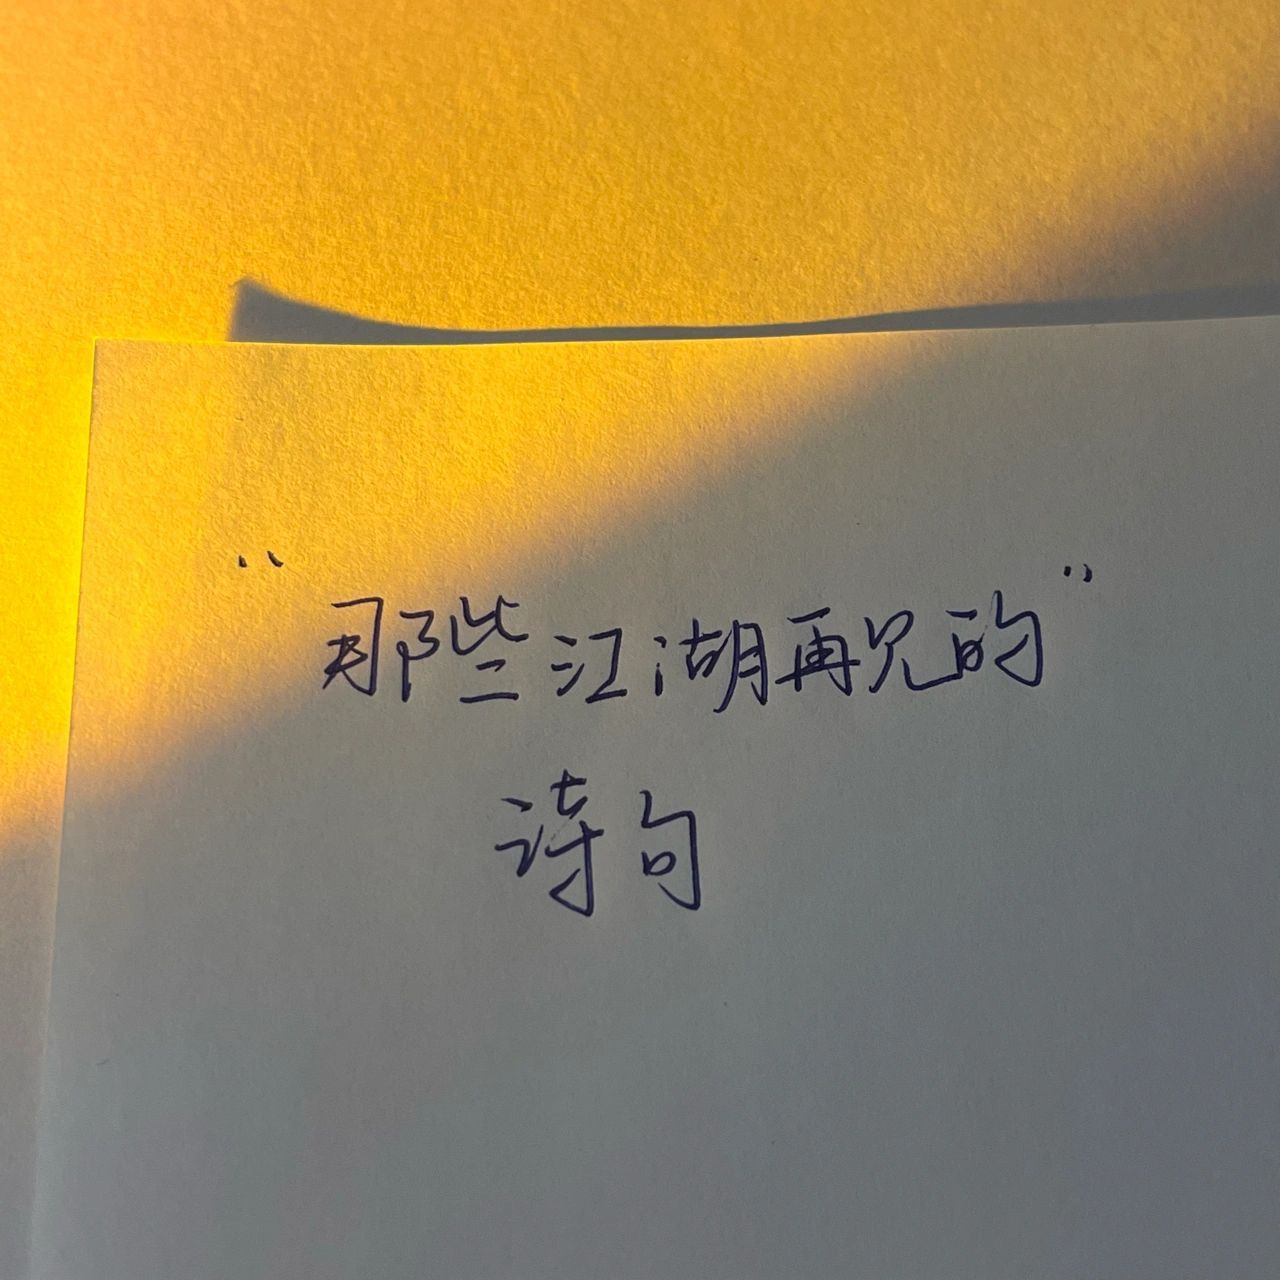 “那些江湖再见的”
诗句